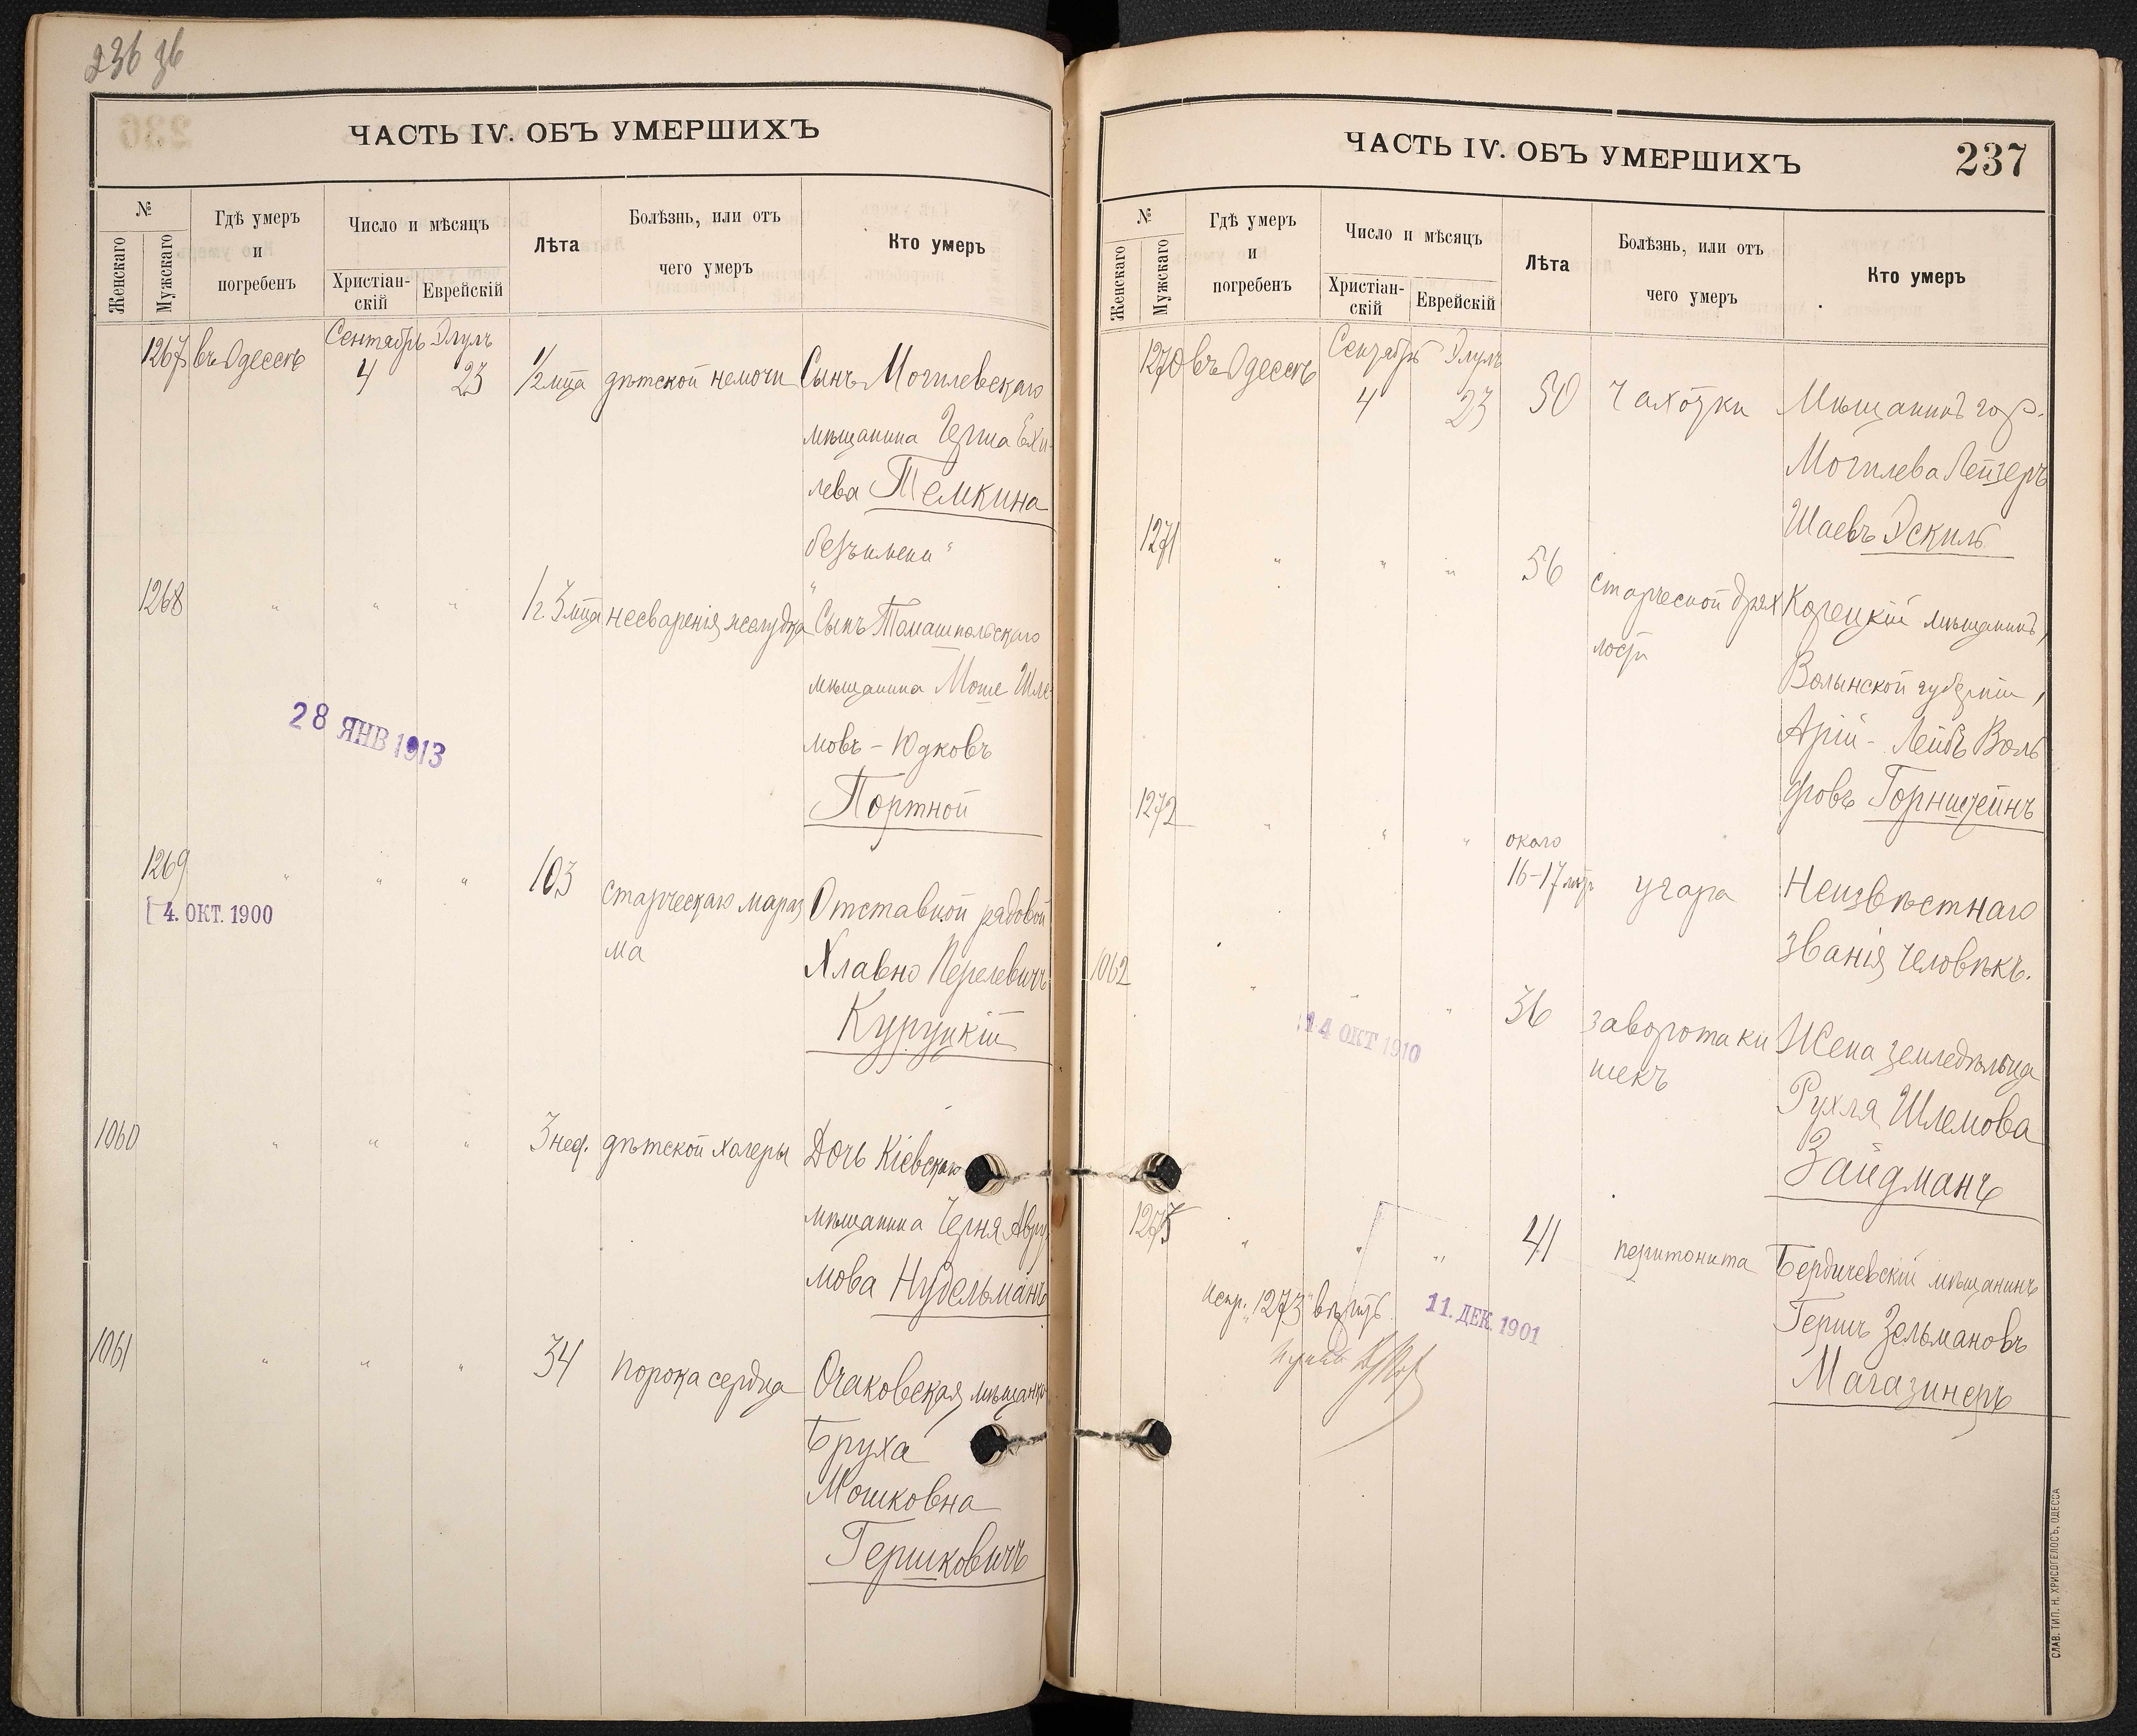 236 36
ЧАСТЬ IV. ОБЪ УМЕРШИХЪ
№
Женскаго
Мужскаго
Гдѣ умеръ
и
погребенъ
Число и мѣсяцъ
Христіан-
скій
Еврейскій
Лѣта
Болѣзнь, или отъ
чего умеръ
Кто умеръ
Сентябрь Элулъ
1267 въ Одессѣ 4 23 1/2 мца дѣтской немочи Сынъ Могилевскаго
мѣщанина Герша Ехи-
лева Темкина
безъ имени
1268 " " " 1 г. 3 мца несваренія желудка Сынъ Томашпольскаго
мѣщанина Моше Шле-
мовъ - Юдковъ
Портной
28 ЯНВ 1913
1269 " " " 103 старческаго мараз Отставной рядовой
ма
4. ОКТ. 1900
Хлавно Перелевичъ
Куруцкій
1060 " " " 3 нед. дѣтской холеры Дочь Кіевскаго
мѣщанина Черня Авру
мова Нудельманъ
1061 " " " 34 порока сердца Очаковская мѣщанка
Бруха
Мошковна
Гершковичъ
ЧАСТЬ IV. ОБЪ УМЕРШИХЪ
237
№
Женскаго
Мужскаго
Гдѣ умеръ
и
погребенъ
Число и мѣсяцъ
Христіан-
скій
Еврейскій
Лѣта
Болѣзнь, или отъ
чего умеръ
Кто умеръ
Сентябрь Элулъ
1270 въ Одессѣ 4 23 50 Чахотки Мѣщанинъ гор.
Могилева Лейзеръ
Шаевъ Эскиль
1271 " " " 56 старческой дрях Корецкій мѣщанинъ,
лости
Волынской губерніи,
Арій - Лейбъ Воль
фовъ Горнштейнъ
1272 " " " около
16-17 лѣтъ угара Неизвѣстнаго
званія человѣкъ.
1062 " " " 36 заворота ки Жена земледѣльца
шекъ
14 ОКТ 1910
Рухля Шлемова
Зайдманъ
1273 " " " 41 перитонита Бердичевскій мѣщанинъ
Гершъ Зельмановъ
Магазинеръ
испр. "1273" вѣрить.
11. ДЕК. 1901
СЛАВ. ТИП. Н. ХРИСОГЕЛОСЪ, ОДЕССА